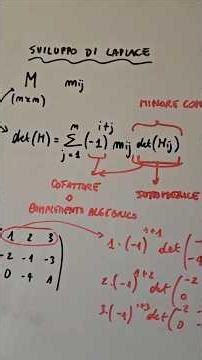 SVILUPPO DI LAPLACE
M mij
(m×m)
MINORE COM
det(M) = Σ (-1)^{i+j} mij det(Mij)
m
j=1
COFATTORE
O
COMPLEMENTO ALGEBRICO
SOTTOMATRICE
1 2 3
-2 -1 -3
0 -4 1
1·(-1)^{1+1} det(-
-4
2·(-1)^{1+2} det(-2
0
3·(-1)^{1+3} det(-2 -
0 -4